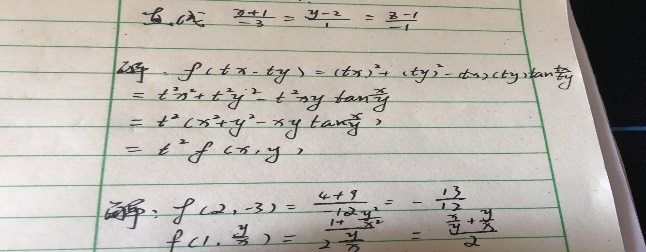 点(式 (x+1)/(-3) = (y-2)/1 = (z-1)/(-1)
解: f(tx - ty) = (tx)² + (ty)² - (tx)(ty) tan tx/ty
= t²x² + t²y² - t²xy tan x/y
= t² (x² + y² - xy tan x/y)
= t² f(x, y)
解: f(2, -3) = (4+9)/(-12) = - 13/12
f(1, y/x) = (1 + y²/x²)/(2 y/x) = (x/y + y/x)/2